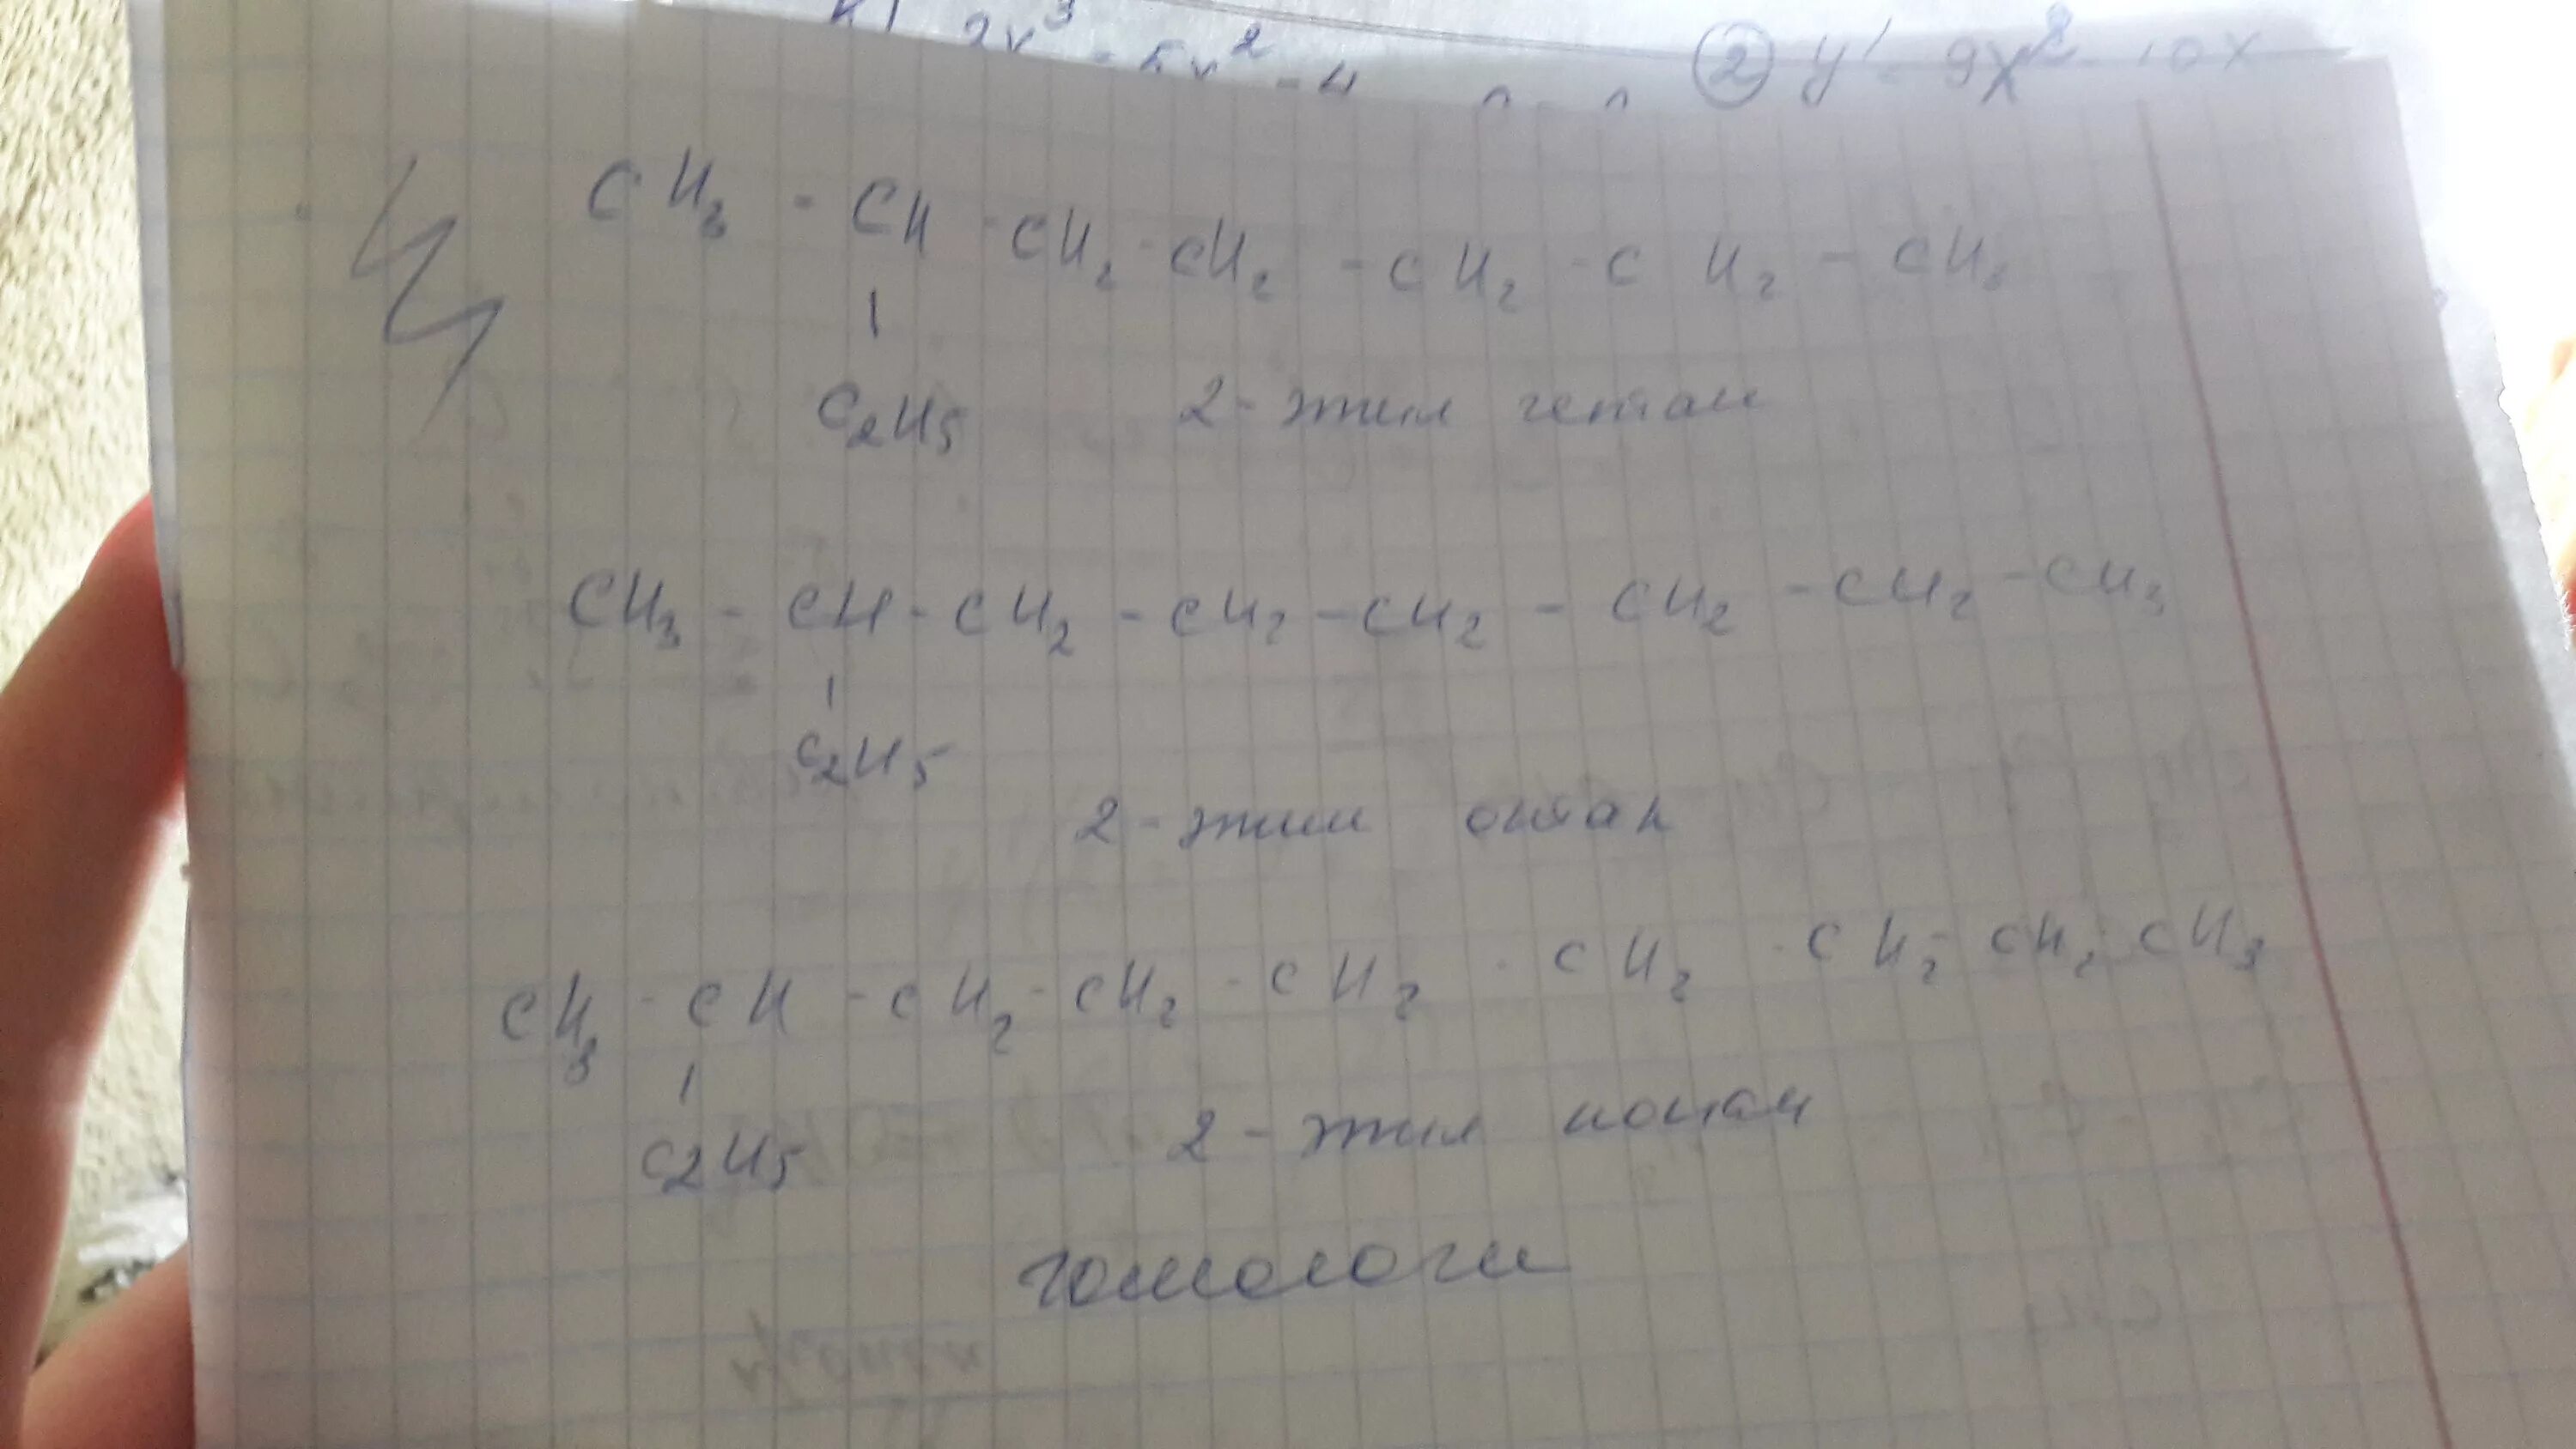 2x³ - 5x² - 4
② y' = 9x² - 10x
CH₃ - CH - CH₂ - CH₂ - CH₂ - CH₂ - CH₃
|
C₂H₅ 2-этил гептан
CH₃ - CH - CH₂ - CH₂ - CH₂ - CH₂ - CH₂ - CH₃
|
C₂H₅
2-этил октан
CH₃ - CH - CH₂ - CH₂ - CH₂ - CH₂ - CH₂ - CH₂ - CH₃
|
C₂H₅ 2-этил нонан
гомологи